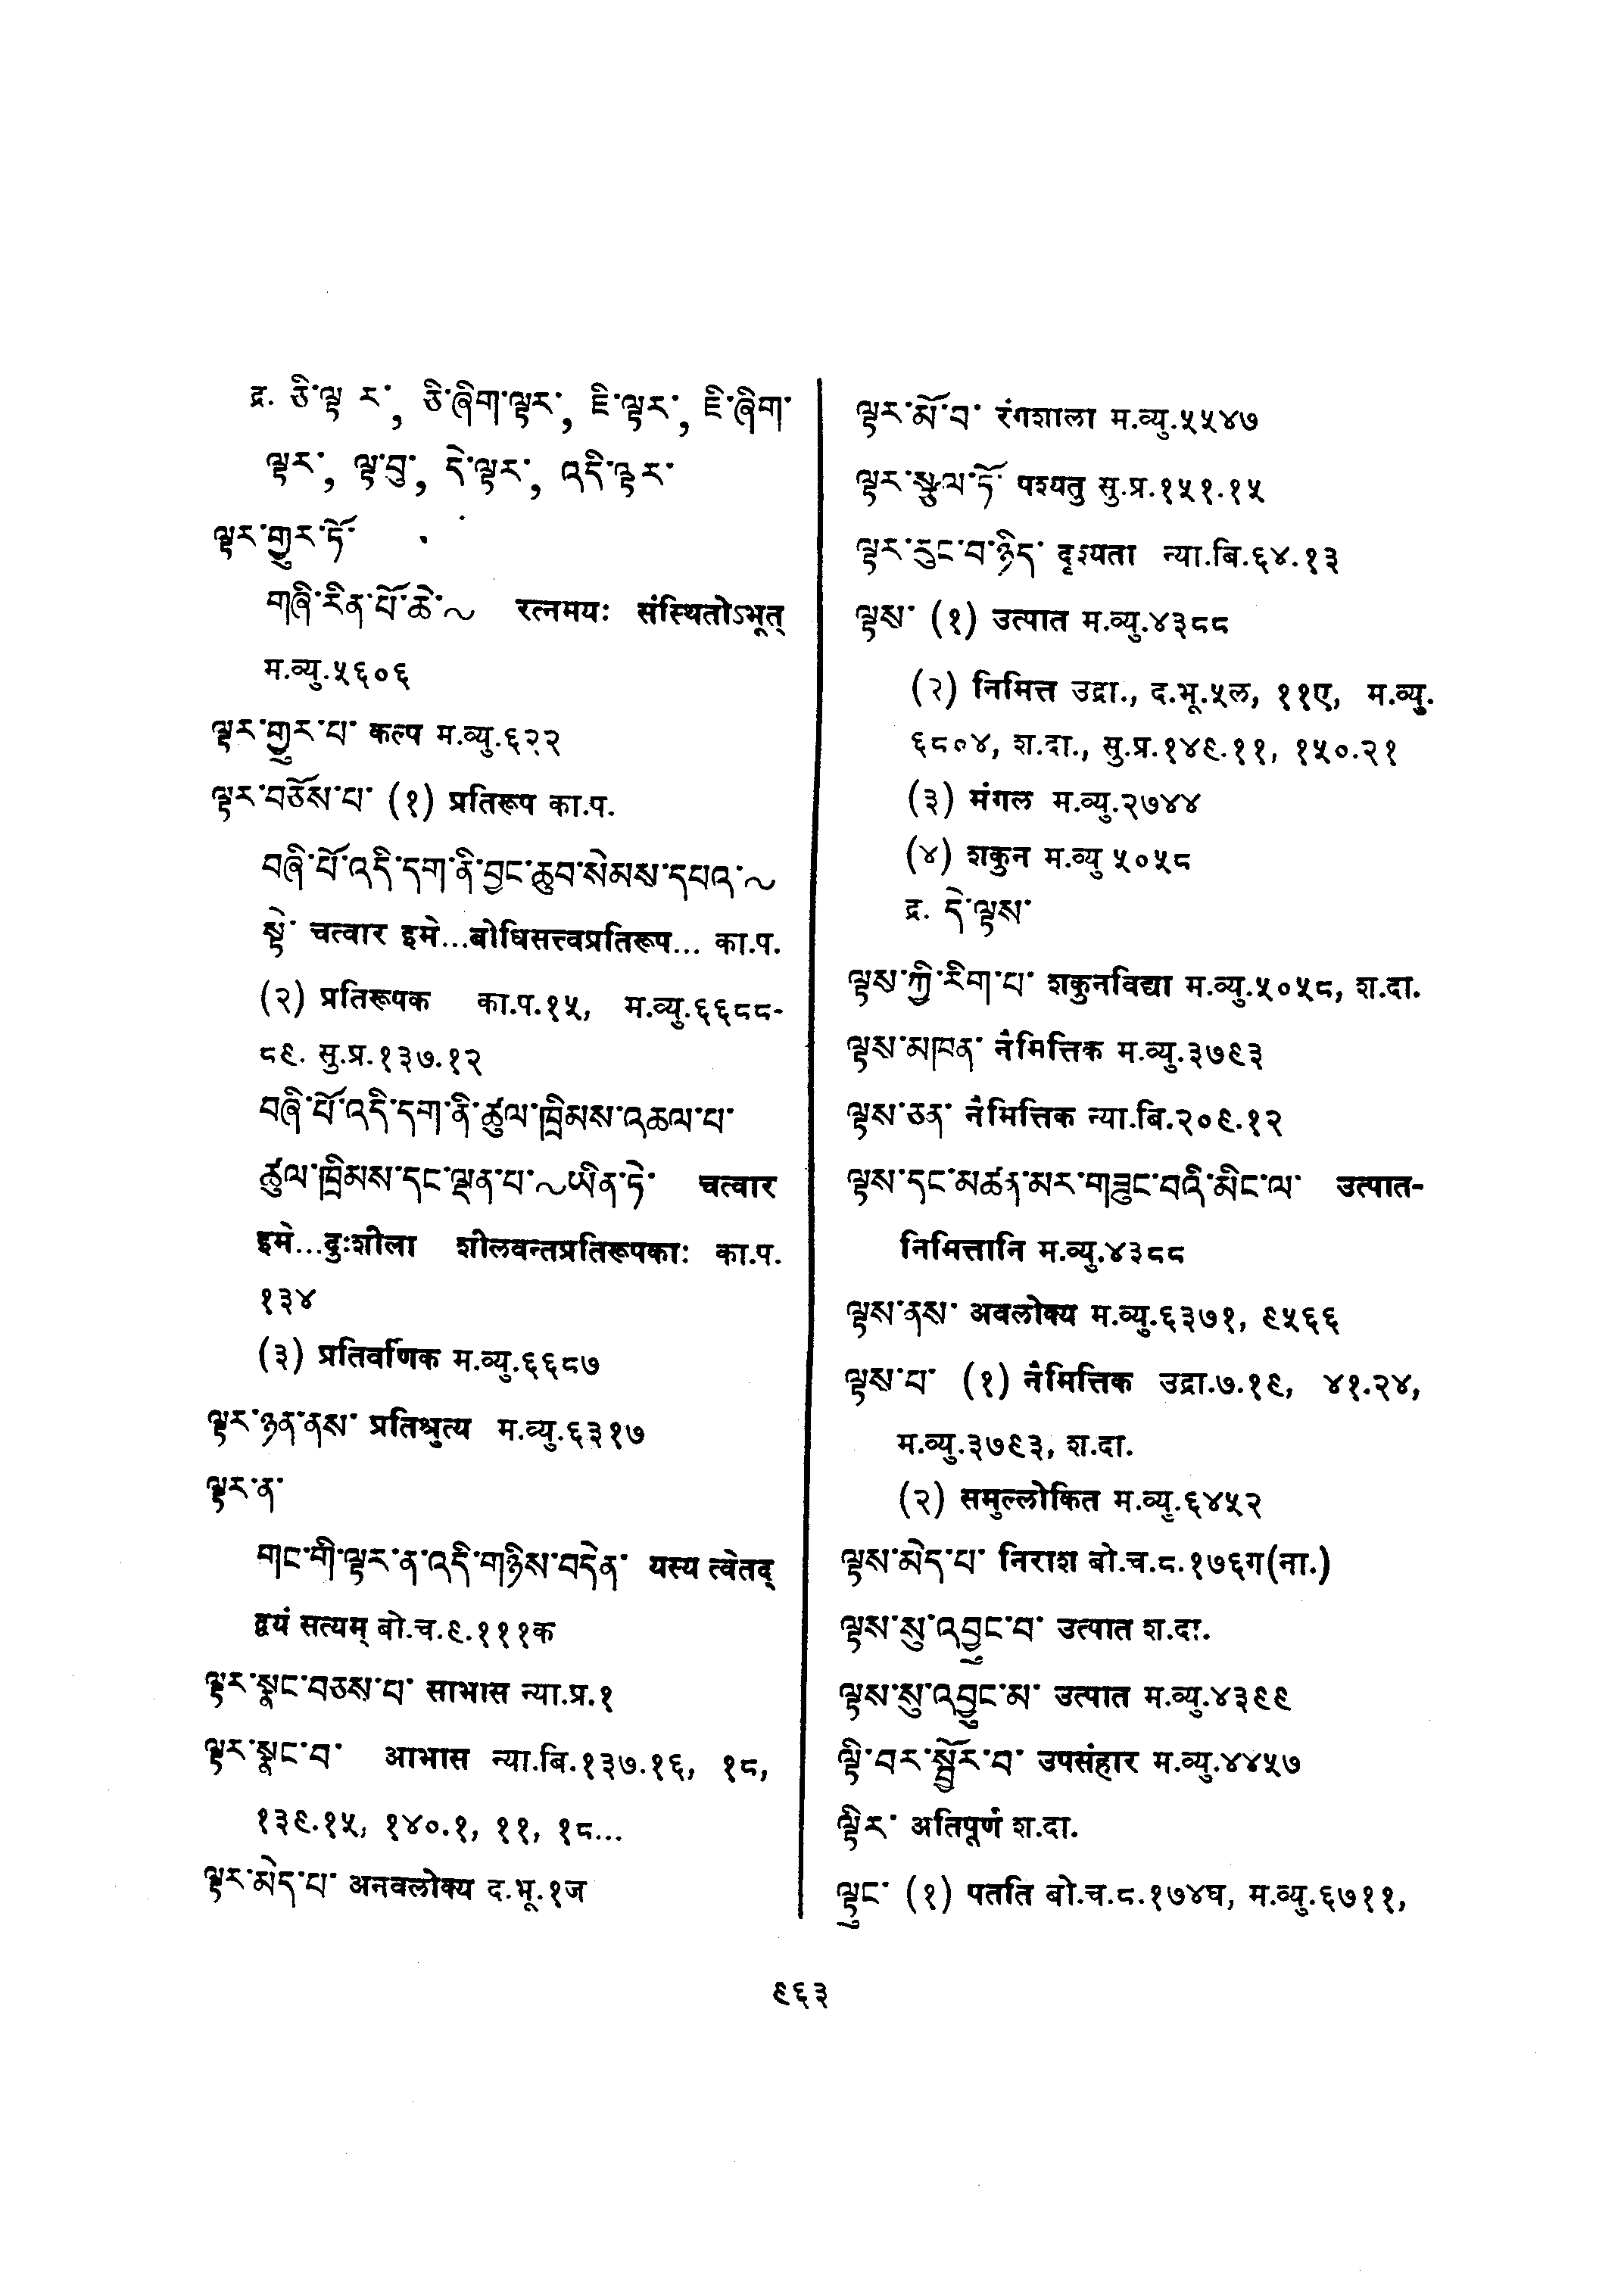 द्र. ཅི་ལྟ ར་, ཅི་ཞིག་ལྟར་, ཇི་ལྟར་, ཇི་ཞིག་
ལྟར་, ལྟ་བུ་, དེ་ལྟར་, འདི་ལྟར་
ལྟར་གྱུར་ཏོ་
གཞི་རིན་པོ་ཆེ་~ रत्नमयः संस्थितोऽभूत्
म.व्यु.५६०६
ལྟར་གྱུར་པ་ कल्प म.व्यु.६२२
ལྟར་བཅོས་པ་ (१) प्रतिरूप का.प.
བཞི་པོ་འདི་དག་ནི་བྱང་ཆུབ་སེམས་དཔའ་~
སྟེ་ चत्वार इमे...बोधिसत्त्वप्रतिरूप... का.प.
(२) प्रतिरूपक का.प.१५, म.व्यु.६६८८-
८९. सु.प्र.१३७.१२
བཞི་པོ་འདི་དག་ནི་ཚུལ་ཁྲིམས་འཆལ་པ་
ཚུལ་ཁྲིམས་དང་ལྡན་པ་~ཡིན་ཏེ་ चत्वार
इमे...दुःशीला शीलवन्तप्रतिरूपकाः का.प.
१३४
(३) प्रतिर्वाणक म.व्यु.६६८७
ལྟར་ཉན་ནས་ प्रतिश्रुत्य म.व्यु.६३१७
ལྟར་ན་
གང་གི་ལྟར་ན་འདི་གཉིས་བདེན་ यस्य त्वेतद्
द्वयं सत्यम् बो.च.९.१११क
ལྟར་སྣང་བཅས་པ་ साभास न्या.प्र.१
ལྟར་སྣང་བ་ आभास न्या.बि.१३७.१६, १८,
१३९.१५, १४०.१, ११, १८...
ལྟར་མེད་པ་ अनवलोक्य द.भू.१ज
ལྟར་མོ་བ་ रंगशाला म.व्यु.५५४७
ལྟར་སྩུལ་ཏོ་ पश्यतु सु.प्र.१५१.१५
ལྟར་རུང་བ་ཉིད་ दृश्यता न्या.बि.६४.१३
ལྟས་ (१) उत्पात म.व्यु.४३८८
(२) निमित्त उद्रा., द.भू.५ल, ११ए, म.व्यु.
६८०४, श.दा., सु.प्र.१४९.११, १५०.२१
(३) मंगल म.व्यु.२७४४
(४) शकुन म.व्यु ५०५८
द्र. དེ་ལྟས་
ལྟས་ཀྱི་རིག་པ་ शकुनविद्या म.व्यु.५०५८, श.दा.
ལྟས་མཁན་ नैमित्तिक म.व्यु.३७९३
ལྟས་ཅན་ नैमित्तिक न्या.बि.२०९.१२
ལྟས་དང་མཚན་མར་གཟུང་བའི་མིང་ལ་ उत्पात-
निमित्तानि म.व्यु.४३८८
ལྟས་ནས་ अवलोक्य म.व्यु.६३७१, ९५६६
ལྟས་པ་ (१) नैमित्तिक उद्रा.७.१९, ४१.२४,
म.व्यु.३७९३, श.दा.
(२) समुल्लोकित म.व्यु.६४५२
ལྟས་མེད་པ་ निराश बो.च.८.१७६ग(ना.)
ལྟས་སུ་འབྱུང་བ་ उत्पात श.दा.
ལྟས་སུ་འབྱུང་མ་ उत्पात म.व्यु.४३९९
ལྟི་བར་སྦྱོར་བ་ उपसंहार म.व्यु.४४५७
ལྟིར་ अतिपूर्ण श.दा.
ལྟུང་ (१) पतति बो.च.८.१७४घ, म.व्यु.६७११,
९६३